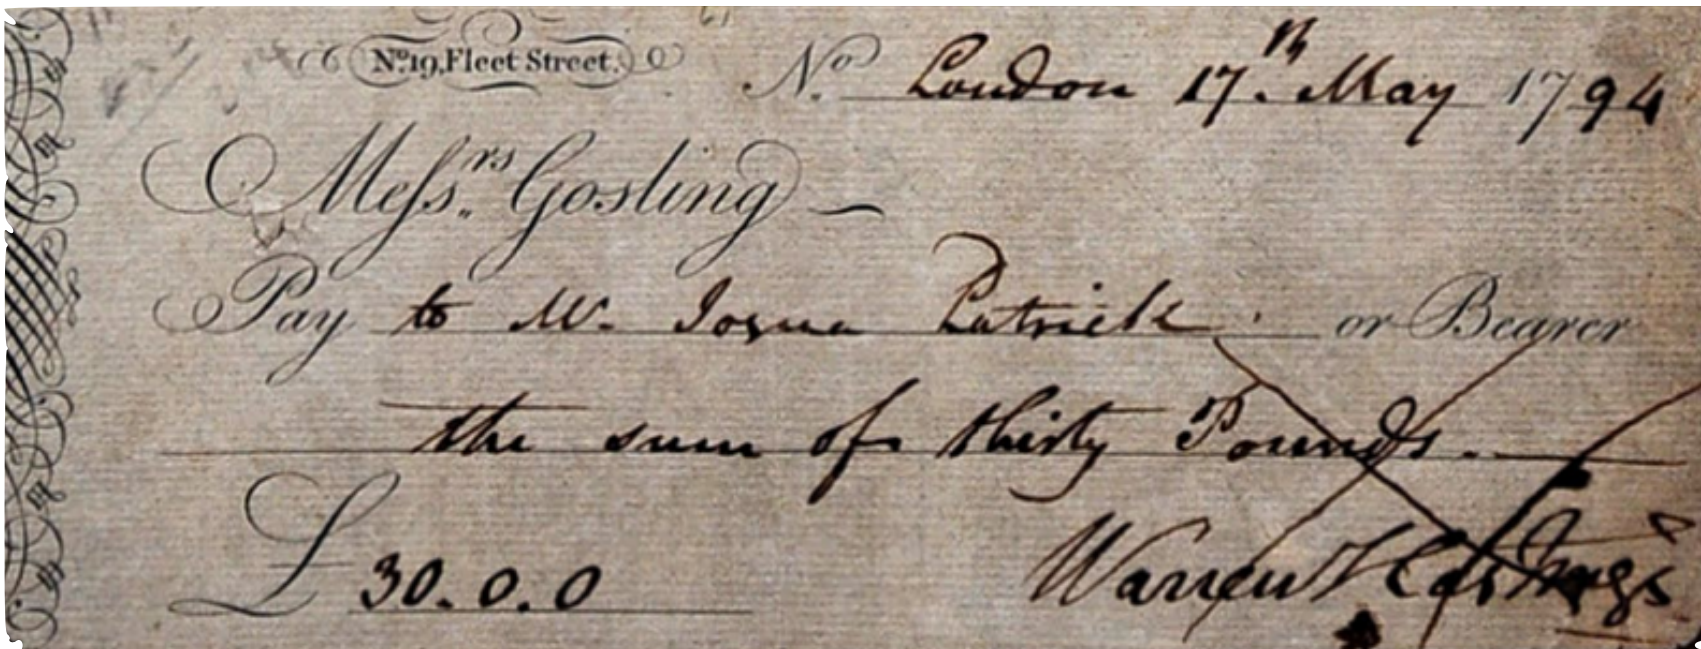 Nº.19, Fleet Street.
Nº. London 17.th May 1794
Meſsrs. Gosling —
Pay to Mr. Josua Patrick . or Bearer
the sum of thirty Pounds.
£ 30.0.0
Warren Hastings